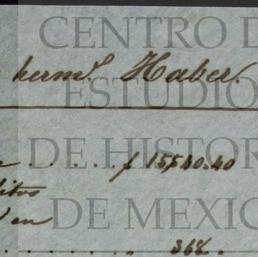 CENTRO D
herm.s Haber.
ESTUDIO
DE HISTOR
. . . . . . $ 15,540.40
ditos
en
DE MEXIC
. . . . . . . . . " 368.